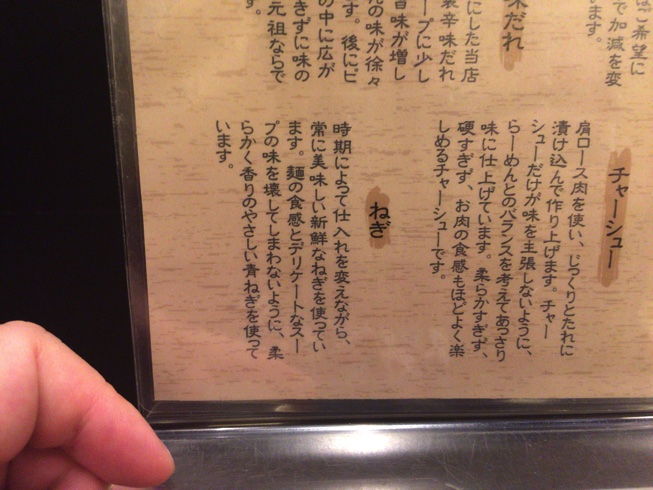 はご希望に
で加減を変
います。
味だれ
にした当店
製辛味だれ
ープに少し
旨味が増し
元の味が徐々
す。後にピ
の中に広が
きずに味の
元祖ならで
す。
チャーシュー
肩ロース肉を使い、じっくりとたれに
漬け込んで作り上げます。チャー
シューだけが味を主張しないように、
らーめんとのバランスを考えてあっさり
味に仕上げています。柔らかすぎず、
硬すぎず、お肉の食感もほどよく楽
しめるチャーシューです。
ねぎ
時期によって仕入れを変えながら、
常に美味しい新鮮なねぎを使ってい
ます。麺の食感とデリケートなスー
プの味を壊してしまわないように、柔
らかく香りのやさしい青ねぎを使って
います。